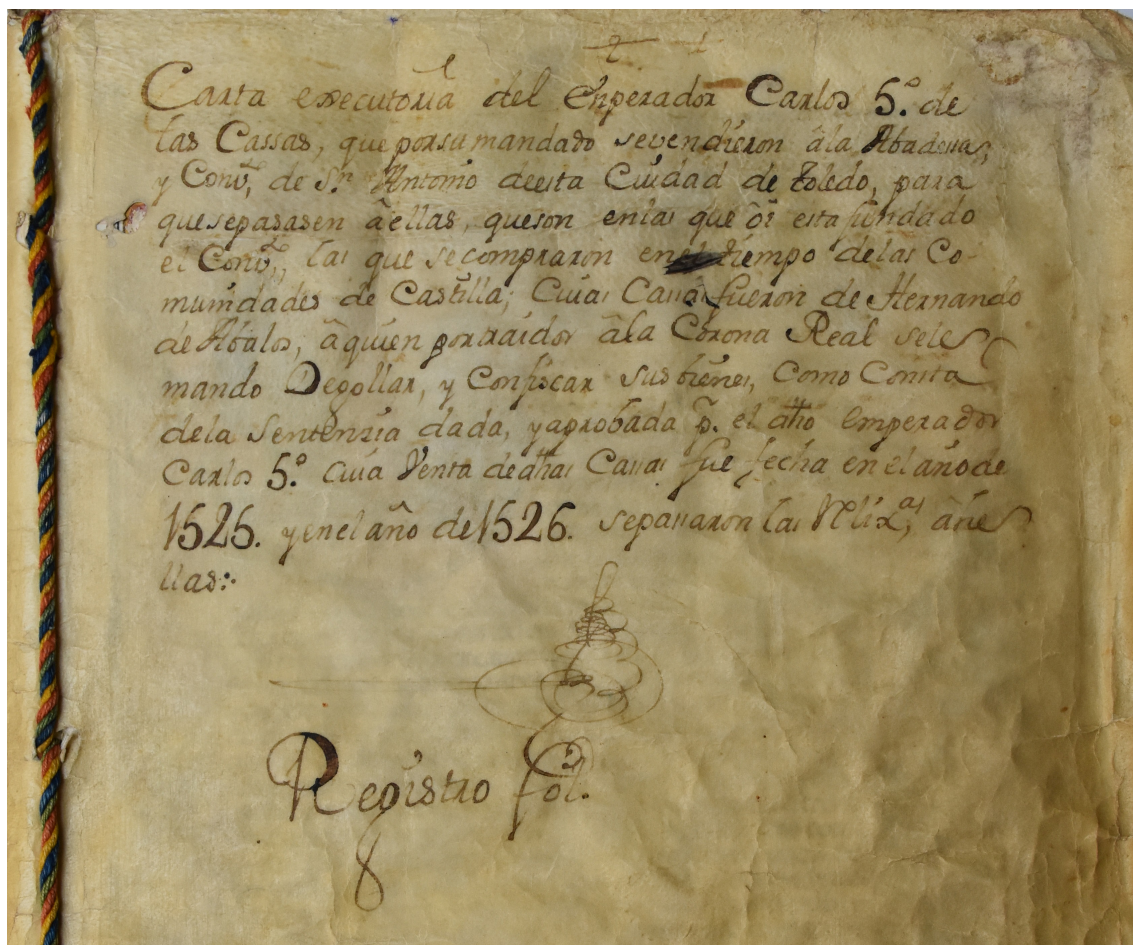 Carta executoria del Enperador Carlos 5.º de
las Cassas, que por su mandado se vendieron â la Abadessa,
y Conv.to, de S.n Antonio de esta Ciudad de Toledo, para
que se pasasen â ellas, que son en las que ôi esta fundado
el Conv.to, las que se compraron en el tiempo de las Co-
munidades de Castilla; Cuias Casas fueron de Hernando
de Abalos, â quien por traidor â la Corona Real se le
mando Degollar, y Confiscar sus bienes, Como Consta
de la Sentenzia dada, y aprobada p.r el dho Emperador
Carlos 5.º Cuia Venta de dhas Casas fue fecha en el año de
1525. y en el año de 1526. se pasaron las Relix.as â âe
llas:
Registro fol.
8